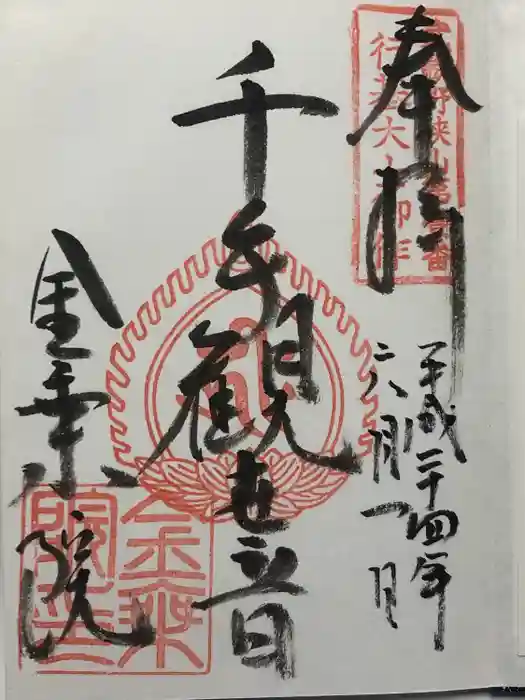 奉拝
行基大士御作
千手観世音
平成二十四年
六月一日
金乗院
金乗
院印